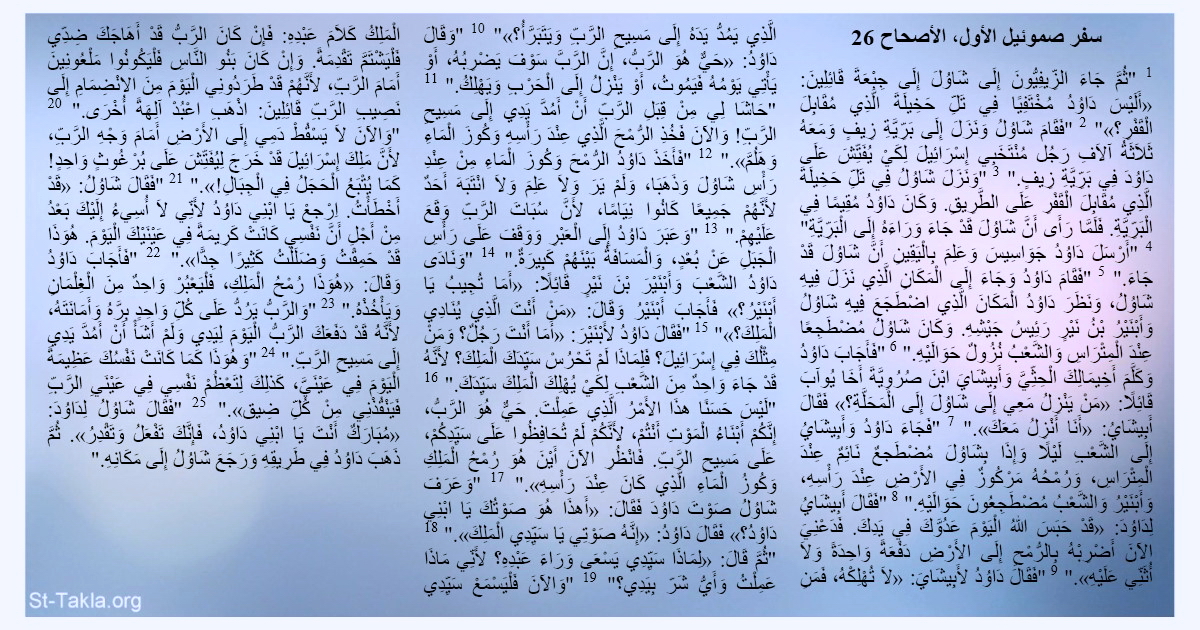 سفر صموئيل الأول، الأصحاح 26
1 "ثُمَّ جَاءَ الزِّيفِيُّونَ إِلَى شَاوُلَ إِلَى جِبْعَةَ قَائِلِينَ:
«أَلَيْسَ دَاوُدُ مُخْتَفِيًا فِي تَلِّ حَخِيلَةَ الَّذِي مُقَابِلَ
الْقَفْرِ؟»" 2 "فَقَامَ شَاوُلُ وَنَزَلَ إِلَى بَرِّيَّةِ زِيفٍ وَمَعَهُ
ثَلاَثَةُ آلاَفِ رَجُل مُنْتَخَبِي إِسْرَائِيلَ لِكَيْ يُفَتِّشَ عَلَى
دَاوُدَ فِي بَرِّيَّةِ زِيفٍ." 3 "وَنَزَلَ شَاوُلُ فِي تَلِّ حَخِيلَةَ
الَّذِي مُقَابِلَ الْقَفْرِ عَلَى الطَّرِيقِ. وَكَانَ دَاوُدُ مُقِيمًا فِي
الْبَرِّيَّةِ. فَلَمَّا رَأَى أَنَّ شَاوُلَ قَدْ جَاءَ وَرَاءَهُ إِلَى الْبَرِّيَّةِ"
4 "أَرْسَلَ دَاوُدُ جَوَاسِيسَ وَعَلِمَ بِالْيَقِينِ أَنَّ شَاوُلَ قَدْ
جَاءَ." 5 "فَقَامَ دَاوُدُ وَجَاءَ إِلَى الْمَكَانِ الَّذِي نَزَلَ فِيهِ
شَاوُلُ، وَنَظَرَ دَاوُدُ الْمَكَانَ الَّذِي اضْطَجَعَ فِيهِ شَاوُلُ
وَأَبْنَيْرُ بْنُ نَيْرٍ رَئِيسُ جَيْشِهِ. وَكَانَ شَاوُلُ مُضْطَجِعًا
عِنْدَ الْمِتْرَاسِ وَالشَّعْبُ نُزُولٌ حَوَالَيْهِ." 6 "فَأَجَابَ دَاوُدُ
وَكَلَّمَ أَخِيمَالِكَ الْحِثِّيَّ وَأَبِيشَايَ ابْنَ صُرُوِيَّةَ أَخَا يُوآبَ
قَائِلًا: «مَنْ يَنْزِلُ مَعِي إِلَى شَاوُلَ إِلَى الْمَحَلَّةِ؟» فَقَالَ
أَبِيشَايُ: «أَنَا أَنْزِلُ مَعَكَ»." 7 "فَجَاءَ دَاوُدُ وَأَبِيشَايُ
إِلَى الشَّعْبِ لَيْلًا وَإِذَا بِشَاوُلَ مُضْطَجعٌ نَائِمٌ عِنْدَ
الْمِتْرَاسِ، وَرُمْحُهُ مَرْكُوزٌ فِي الأَرْضِ عِنْدَ رَأْسِهِ،
وَأَبْنَيْرُ وَالشَّعْبُ مُضْطَجِعُونَ حَوَالَيْهِ." 8 "فَقَالَ أَبِيشَايُ
لِدَاوُدَ: «قَدْ حَبَسَ اللهُ الْيَوْمَ عَدُوَّكَ فِي يَدِكَ. فَدَعْنِيَ
الآنَ أَضْرِبْهُ بِالرُّمْحِ إِلَى الأَرْضِ دَفْعَةً وَاحِدَةً وَلاَ
أُثَنِّي عَلَيْهِ»." 9 "فَقَالَ دَاوُدُ لأَبِيشَايَ: «لاَ تُهْلِكْهُ، فَمَنِ
الَّذِي يَمُدُّ يَدَهُ إِلَى مَسِيحِ الرَّبِّ وَيَتَبَرَّأُ؟»" 10 "وَقَالَ
دَاوُدُ: «حَيٌّ هُوَ الرَّبُّ، إِنَّ الرَّبَّ سَوْفَ يَضْرِبُهُ، أَوْ
يَأْتِي يَوْمُهُ فَيَمُوتُ، أَوْ يَنْزِلُ إِلَى الْحَرْبِ وَيَهْلِكُ." 11
"حَاشَا لِي مِنْ قِبَلِ الرَّبِّ أَنْ أَمُدَّ يَدِي إِلَى مَسِيحِ
الرَّبِّ! وَالآنَ فَخُذِ الرُّمْحَ الَّذِي عِنْدَ رَأْسِهِ وَكُوزَ الْمَاءِ
وَهَلُمَّ»." 12 "فَأَخَذَ دَاوُدُ الرُّمْحَ وَكُوزَ الْمَاءِ مِنْ عِنْدِ
رَأْسِ شَاوُلَ وَذَهَبَا، وَلَمْ يَرَ وَلاَ عَلِمَ وَلاَ انْتَبَهَ أَحَدٌ
لأَنَّهُمْ جَمِيعًا كَانُوا نِيَامًا، لأَنَّ سُبَاتَ الرَّبِّ وَقَعَ
عَلَيْهِمْ." 13 "وَعَبَرَ دَاوُدُ إِلَى الْعَبْرِ وَوَقَفَ عَلَى رَأْسِ
الْجَبَلِ عَنْ بُعْدٍ، وَالْمَسَافَةُ بَيْنَهُمْ كَبِيرَةٌ." 14 "وَنَادَى
دَاوُدُ الشَّعْبَ وَأَبْنَيْرَ بْنَ نَيْرٍ قَائِلًا: «أَمَا تُجِيبُ يَا
أَبْنَيْرُ؟» فَأَجَابَ أَبْنَيْرُ وَقَالَ: «مَنْ أَنْتَ الَّذِي يُنَادِي
الْمَلِكَ؟»" 15 "فَقَالَ دَاوُدُ لأَبْنَيْرَ: «أَمَا أَنْتَ رَجُلٌ؟ وَمَنْ
مِثْلُكَ فِي إِسْرَائِيلَ؟ فَلِمَاذَا لَمْ تَحْرُسْ سَيِّدَكَ الْمَلِكَ؟ لأَنَّهُ
قَدْ جَاءَ وَاحِدٌ مِنَ الشَّعْبِ لِكَيْ يُهْلِكَ الْمَلِكَ سَيِّدَكَ." 16
"لَيْسَ حَسَنًا هذَا الأَمْرُ الَّذِي عَمِلْتَ. حَيٌّ هُوَ الرَّبُّ،
إِنَّكُمْ أَبْنَاءُ الْمَوْتِ أَنْتُمْ، لأَنَّكُمْ لَمْ تُحَافِظُوا عَلَى سَيِّدِكُمْ،
عَلَى مَسِيحِ الرَّبِّ. فَانْظُرِ الآنَ أَيْنَ هُوَ رُمْحُ الْمَلِكِ
وَكُوزُ الْمَاءِ الَّذِي كَانَ عِنْدَ رَأْسِهِ»." 17 "وَعَرَفَ
شَاوُلُ صَوْتَ دَاوُدَ فَقَالَ: «أَهذَا هُوَ صَوْتُكَ يَا ابْنِي
دَاوُدُ؟» فَقَالَ دَاوُدُ: «إِنَّهُ صَوْتِي يَا سَيِّدِي الْمَلِكَ»." 18
"ثُمَّ قَالَ: «لِمَاذَا سَيِّدِي يَسْعَى وَرَاءَ عَبْدِهِ؟ لأَنِّي مَاذَا
عَمِلْتُ وَأَيُّ شَرّ بِيَدِي؟" 19 "وَالآنَ فَلْيَسْمَعْ سَيِّدِي
الْمَلِكُ كَلاَمَ عَبْدِهِ: فَإِنْ كَانَ الرَّبُّ قَدْ أَهَاجَكَ ضِدِّي
فَلْيَشْتَمَّ تَقْدِمَةً. وَإِنْ كَانَ بَنُو النَّاسِ فَلْيَكُونُوا مَلْعُونِينَ
أَمَامَ الرَّبِّ، لأَنَّهُمْ قَدْ طَرَدُونِي الْيَوْمَ مِنَ الانْضِمَامِ إِلَى
نَصِيبِ الرَّبِّ قَائِلِينَ: اذْهَبِ اعْبُدْ آلِهَةً أُخْرَى." 20
"وَالآنَ لاَ يَسْقُطْ دَمِي إِلَى الأَرْضِ أَمَامَ وَجْهِ الرَّبِّ،
لأَنَّ مَلِكَ إِسْرَائِيلَ قَدْ خَرَجَ لِيُفَتِّشَ عَلَى بُرْغُوثٍ وَاحِدٍ!
كَمَا يُتْبَعُ الْحَجَلُ فِي الْجِبَالِ!»." 21 "فَقَالَ شَاوُلُ: «قَدْ
أَخْطَأْتُ. اِرْجِعْ يَا ابْنِي دَاوُدُ لأَنِّي لاَ أُسِيءُ إِلَيْكَ بَعْدُ
مِنْ أَجْلِ أَنَّ نَفْسِي كَانَتْ كَرِيمَةً فِي عَيْنَيْكَ الْيَوْمَ. هُوَذَا
قَدْ حَمِقْتُ وَضَلَلْتُ كَثِيرًا جِدًّا»." 22 "فَأَجَابَ دَاوُدُ
وَقَالَ: «هُوَذَا رُمْحُ الْمَلِكِ، فَلْيَعْبُرْ وَاحِدٌ مِنَ الْغِلْمَانِ
وَيَأْخُذْهُ." 23 "وَالرَّبُّ يَرُدُّ عَلَى كُلِّ وَاحِدٍ بِرَّهُ وَأَمَانَتَهُ،
لأَنَّهُ قَدْ دَفَعَكَ الرَّبُّ الْيَوْمَ لِيَدِي وَلَمْ أَشَأْ أَنْ أَمُدَّ يَدِي
إِلَى مَسِيحِ الرَّبِّ." 24 "وَهُوَذَا كَمَا كَانَتْ نَفْسُكَ عَظِيمَةً
الْيَوْمَ فِي عَيْنَيَّ، كَذلِكَ لِتَعْظُمْ نَفْسِي فِي عَيْنَيِ الرَّبِّ
فَيَنْقُذْنِي مِنْ كُلِّ ضِيق»." 25 "فَقَالَ شَاوُلُ لِدَاوُدَ:
«مُبَارَكٌ أَنْتَ يَا ابْنِي دَاوُدُ، فَإِنَّكَ تَفْعَلُ وَتَقْدِرُ». ثُمَّ
ذَهَبَ دَاوُدُ فِي طَرِيقِهِ وَرَجَعَ شَاوُلُ إِلَى مَكَانِهِ."
St-Takla.org